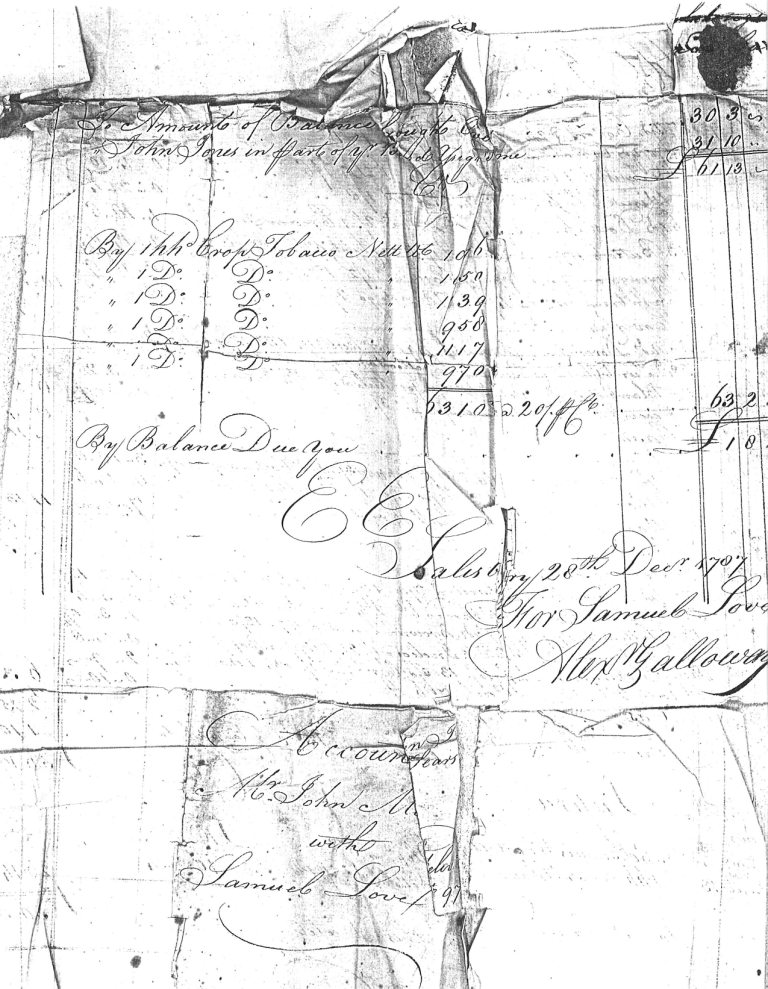 To Amount of Balance brought 30 3
John Jones in part of yr 31 10 ..
£ 61 13
By 1 hhd Crop Tobacco Nett lb 106
" 1 Do Do " 1150
" 1 Do Do " 1139
" 1 Do Do " 958
" 1 Do Do " 1117
" 1 Do Do " 970
6310 a 20/ p Ct 63 2
By Balance Due you £ 1 8
E E
Salisbury 28th Decr 1787
For Samuel Love
Alexr Galloway
Account
Mr. John
with
Samuel Love